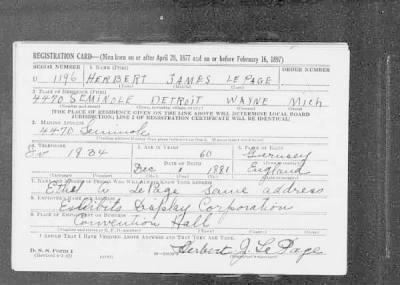 REGISTRATION CARD—(Men born on or after April 28, 1877 and on or before February 16, 1897)
SERIAL NUMBER 1. NAME (Print) ORDER NUMBER
U 1196 HERBERT JAMES LE PAGE
(First) (Middle) (Last)
2. PLACE OF RESIDENCE (Print)
4470 SEMINOLE DETROIT WAYNE Mich
(Number and street) (Town, township, village, or city) (County) (State)
[THE PLACE OF RESIDENCE GIVEN ON THE LINE ABOVE WILL DETERMINE LOCAL BOARD
JURISDICTION; LINE 2 OF REGISTRATION CERTIFICATE WILL BE IDENTICAL]
3. MAILING ADDRESS
4470 Seminole
4. TELEPHONE 5. AGE IN YEARS 6. PLACE OF BIRTH
60 Guernsey
DATE OF BIRTH
1934 Dec 1881 England
(Exchange) (Number) (Mo.) (Day) (Yr.) (State or country)
7. NAME AND ADDRESS OF PERSON WHO WILL ALWAYS KNOW YOUR ADDRESS
Ethel LePage same address
8. EMPLOYER'S NAME AND ADDRESS
Exhibits Display Corporation
9. PLACE OF EMPLOYMENT OR BUSINESS
Convention Hall
(Number and street or R. F. D. number) (Town) (County) (State)
I AFFIRM THAT I HAVE VERIFIED ABOVE ANSWERS AND THAT THEY ARE TRUE.
D. S. S. Form 1
(Revised 4-1-42) (over)
Herbert J. Le Page
(Registrant's signature)